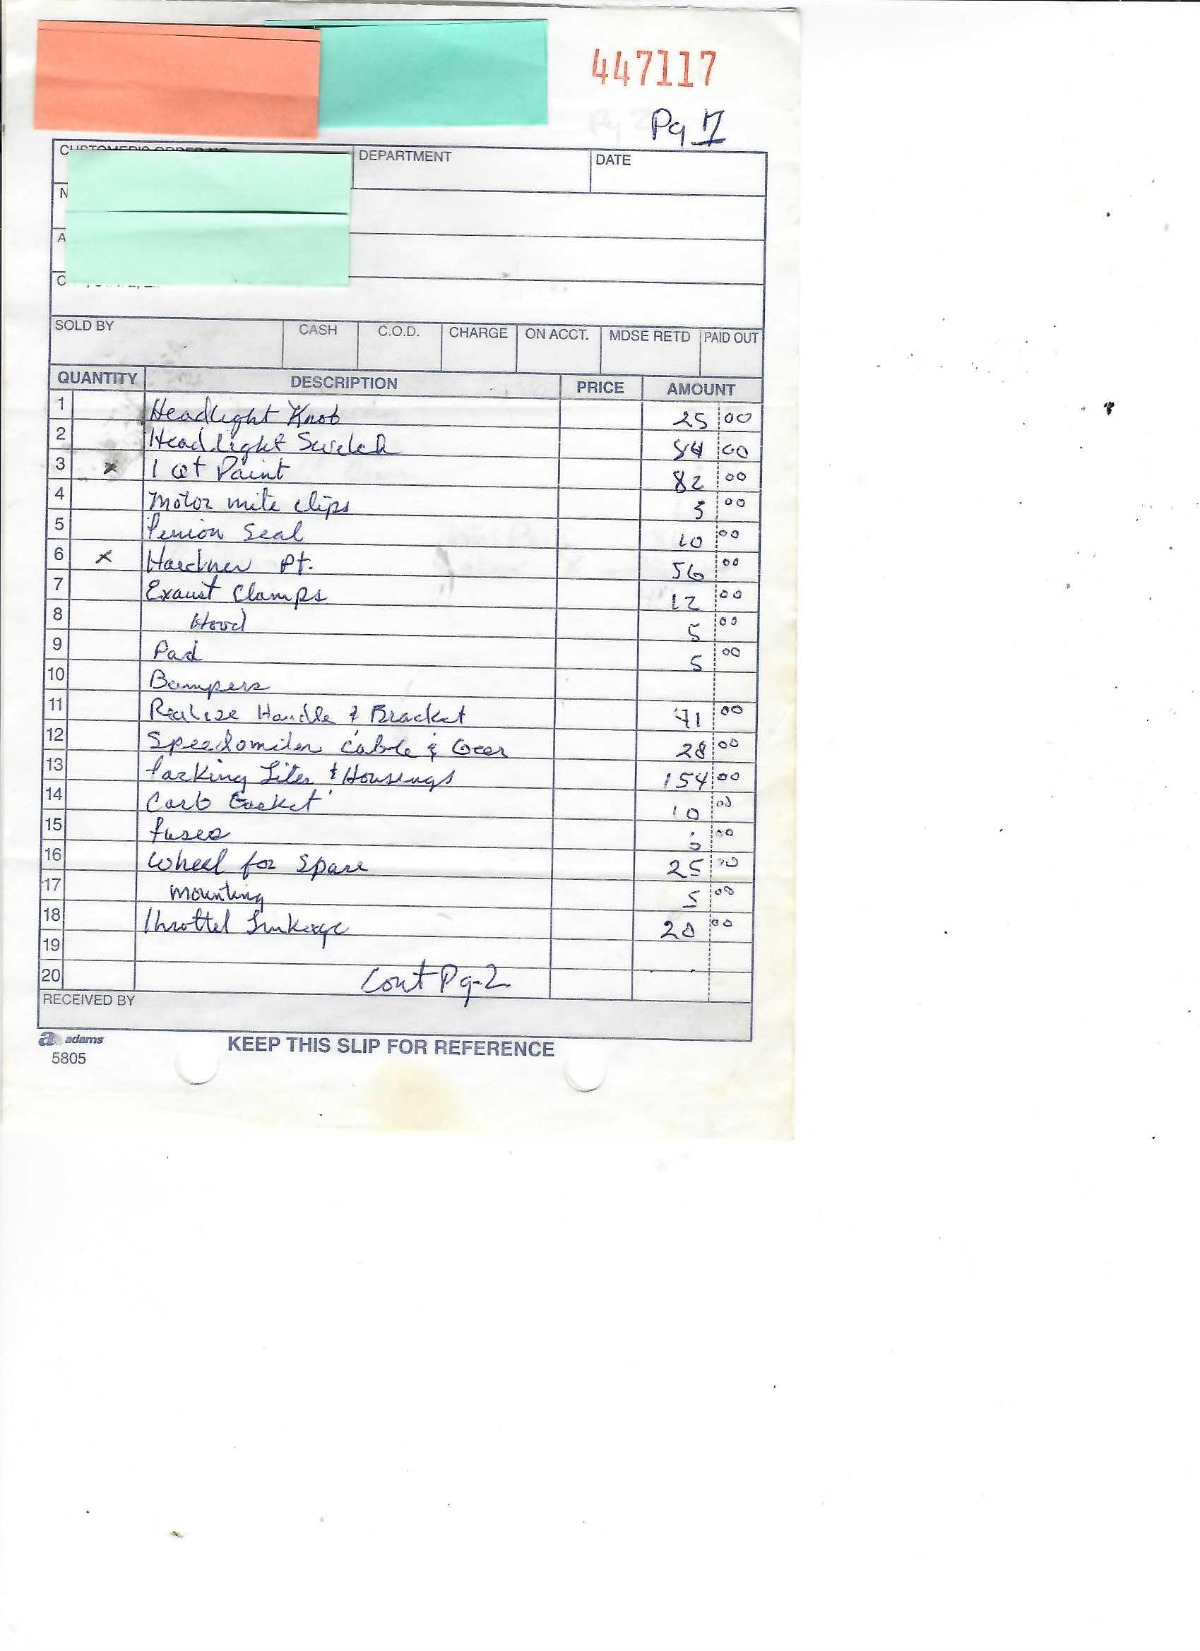 447117
Pg 1
DEPARTMENT
DATE
SOLD BY
CASH
C.O.D.
CHARGE
ON ACCT.
MDSE RETD
PAID OUT
QUANTITY DESCRIPTION PRICE AMOUNT
1 Headlight Knob 25 00
2 Headlight Switch 84 00
3 x 1 Qt Paint 82 00
4 Motor mite clips 5 00
5 Penion Seal 10 00
6 x Hardner Pt. 56 00
7 Exaust Clamps 12 00
8 Hood 5 00
9 Pad 5 00
10 Bumpers
11 Realise Handle & Bracket 71 00
12 Speedomiter Cable & Gear 28 00
13 Parking Lites & Housings 154 00
14 Carb Gasket 10 00
15 fuses 00
16 Wheel for Spare 25 00
17 mounting 5 00
18 Throttel Linkage 20 00
19
20 Cont Pg-2
RECEIVED BY
a adams
5805
KEEP THIS SLIP FOR REFERENCE